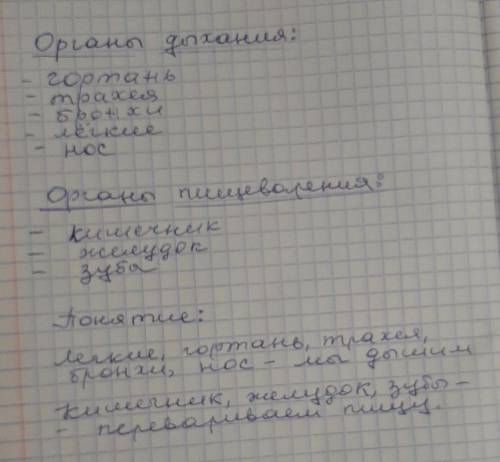 Органы дыхания:
- гортань
- трахея
- бронхи
- лёгкие
- нос
Органы пищеволения:
- кишечник
- желудок
- зубы
Понятие:
легкие, гортань, трахея,
бронхи, нос - мы дышим
кишечник, желудок, зубы -
- перевариваем пищу.